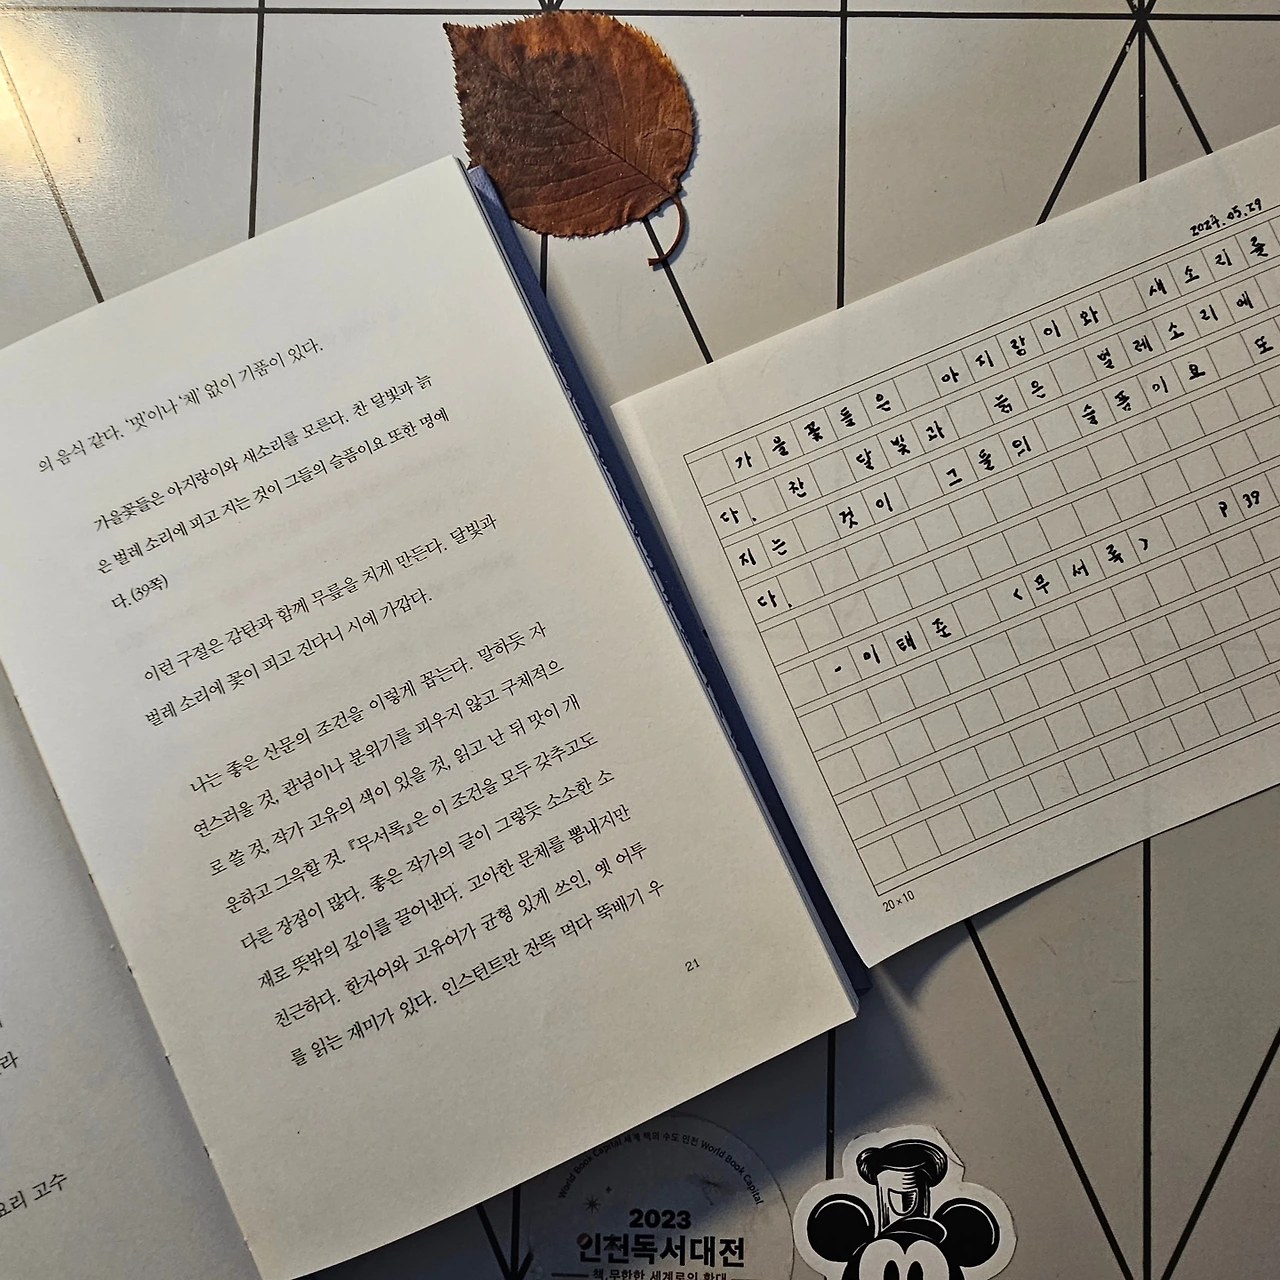 의 음식 같다. '멋'이나 '체' 없이 기품이 있다.
가을꽃들은 아지랑이와 새소리를 모른다. 찬 달빛과 늙
은 벌레 소리에 피고 지는 것이 그들의 슬픔이요 또한 명예
다. (39쪽)
이런 구절은 감탄과 함께 무릎을 치게 만든다. 달빛과
벌레 소리에 꽃이 피고 진다니 시에 가깝다.
나는 좋은 산문의 조건을 이렇게 꼽는다. 말하듯 자
연스러울 것, 관념이나 분위기를 피우지 않고 구체적으
로 쓸 것, 작가 고유의 색이 있을 것, 읽고 난 뒤 맛이 개
운하고 그윽할 것. 『무서록』은 이 조건을 모두 갖추고도
다른 장점이 많다. 좋은 작가의 글이 그렇듯 소소한 소
재로 뜻밖의 깊이를 끌어낸다. 고아한 문체를 뽐내지만
친근하다. 한자어와 고유어가 균형 있게 쓰인, 옛 어투
를 읽는 재미가 있다. 인스턴트만 잔뜩 먹다 뚝배기 우
21
라
요리 고수
2024.05.29
가을꽃들은 아지랑이와 새소리를
다. 찬 달빛과 늙은 벌레소리에
지는 것이 그들의 슬픔이요 또
다.
- 이태준 <무서록> P 39
20×10
World Book Capital 세계 책의 수도 인천 World Book Capital
2023
인천독서대전
책, 무한한 세계로의 확대